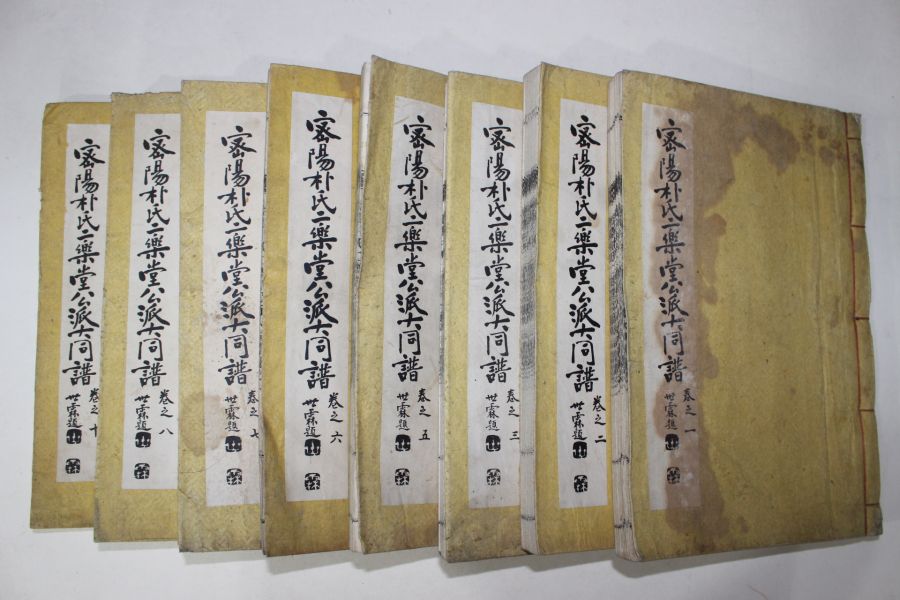 密陽朴氏二樂堂公派大同譜
卷之一
世霖題
密陽朴氏二樂堂公派大同譜
卷之二
世霖題
密陽朴氏二樂堂公派大同譜
卷之三
世霖題
密陽朴氏二樂堂公派大同譜
卷之五
世霖題
密陽朴氏二樂堂公派大同譜
卷之六
世霖題
密陽朴氏二樂堂公派大同譜
卷之七
世霖題
密陽朴氏二樂堂公派大同譜
卷之八
世霖題
密陽朴氏二樂堂公派大同譜
卷之十
世霖題